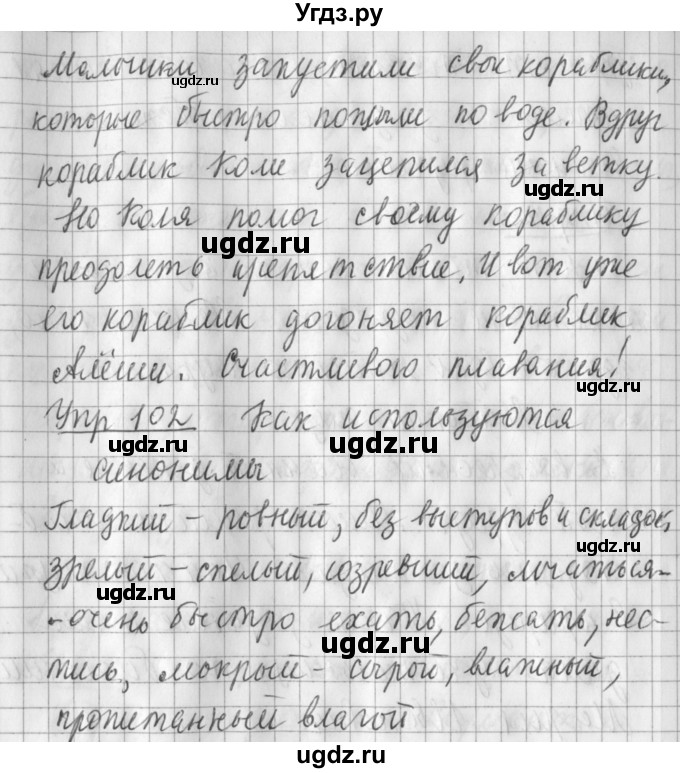 Угдз.ру
Мальчики запустили свои кораблики,
которые быстро поплыли по воде. Вдруг
кораблик Коли зацепился за ветку.
Но Коля помог своему кораблику
преодолеть препятствие. И вот уже
его кораблик догоняет кораблик
Алёши. Счастливого плавания!
Упр 102 Как используются
синонимы
Гладкий – ровный, без выступов и складок,
зрелый – спелый, созревший, мчаться –
– очень быстро ехать, бежать, нес-
тись, мокрый – сырой, влажный,
пропитанный влагой
ugdz.ru
ugdz.ru
ugdz.ru
ugdz.ru
ugdz.ru
ugdz.ru
ugdz.ru
ugdz.ru
ugdz.ru
ugdz.ru
ugdz.ru